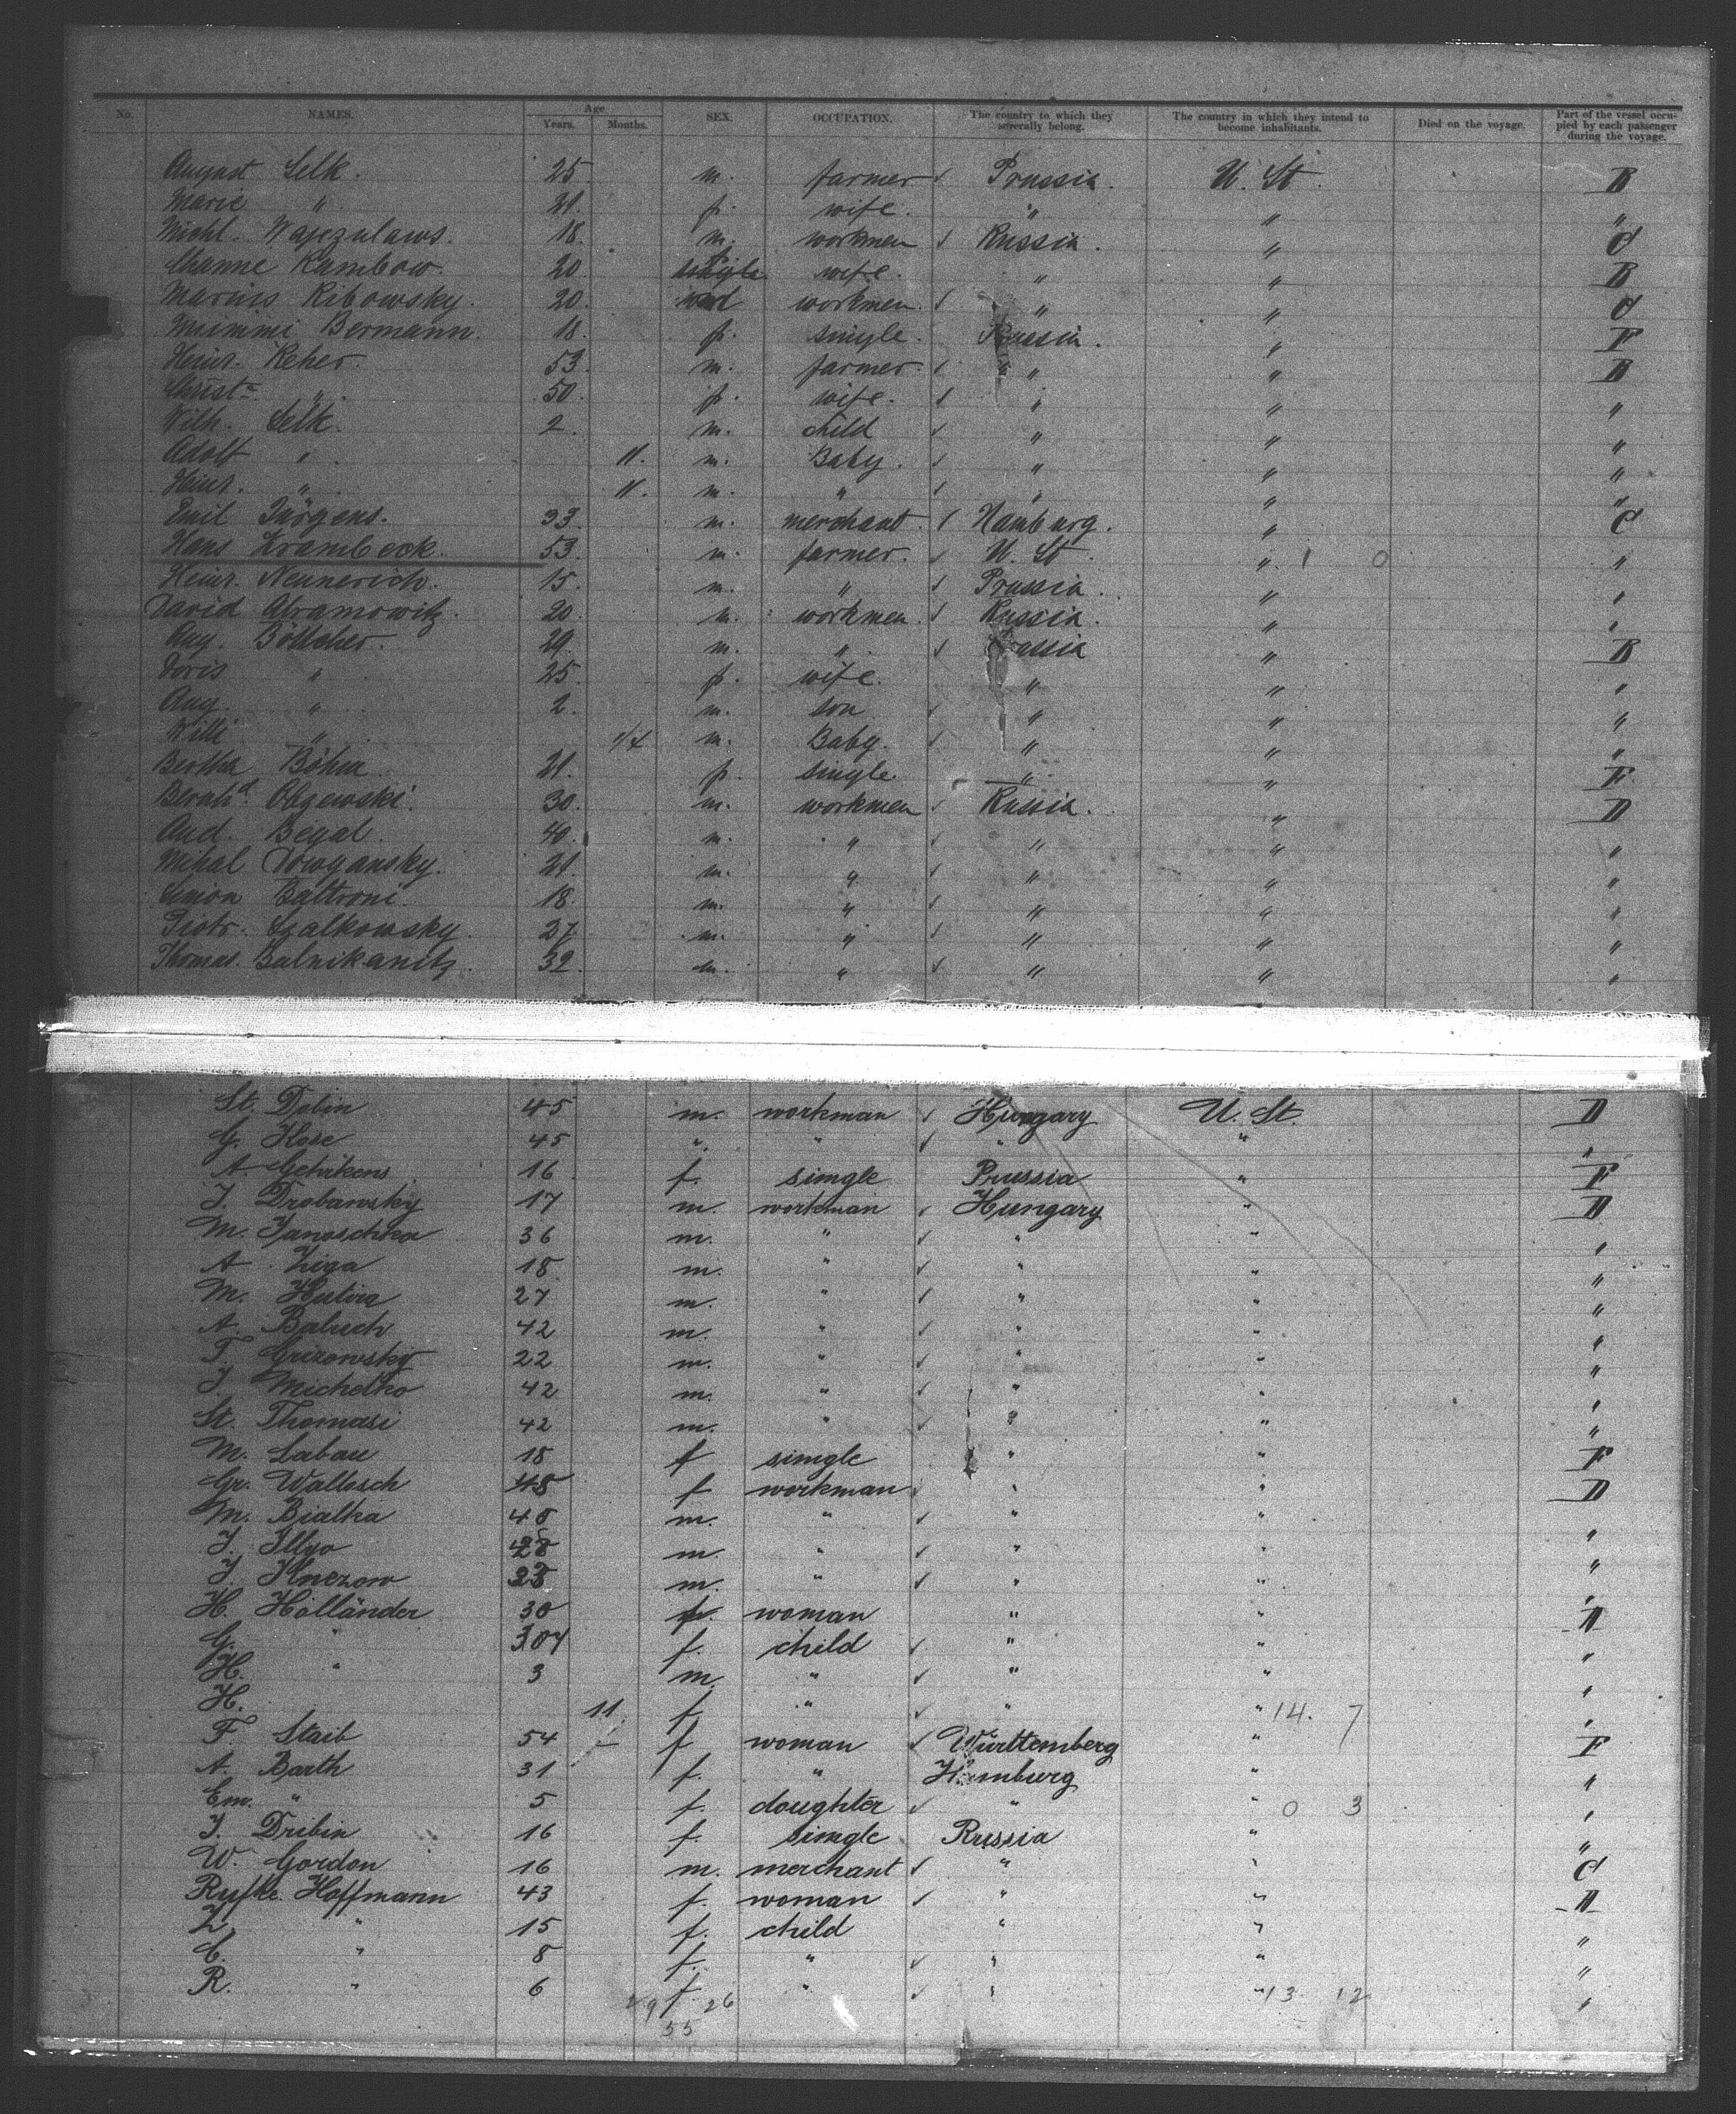 No. NAMES. Age Years. Months. SEX. OCCUPATION. The country to which they severally belong. The country in which they intend to become inhabitants. Died on the voyage. Part of the vessel occupied by each passenger during the voyage.
August Selk. 25. m. farmer ✓ Prussia. U. St. B
Marie " 21. f. wife. " " "
Michl. Wajczulaws. 18. m. workmen ✓ Russia. " C
Channe Rambow. 20. single wife. " " B
Marius Ribowsky. 20. workmen. ✓ " " C
Mimmi Bermann. 18. f. single. Prussia. " F
Heinr. Reher. 53. m. farmer. ✓ " " B
Christ. " 50. f. wife. ✓ " " "
Wilh. Selk. 2. m. child ✓ " " "
Adolf " 11. m. Baby. ✓ " " "
Heinr. " 11. m. " ✓ " " "
Emil Jürgens. 33. m. merchant. ✓ Hamburg. " C
Hans Krambeck. 53. m. farmer. ✓ U. St. " 1 0 "
Heinr. Neunerich. 15. m. " ✓ Prussia. " "
David Abramowitz. 20. m. workmen. ✓ Russia. " "
Aug. Böttcher. 29. m. " ✓ Prussia " B
Doris " 25. f. wife. " " "
Aug. " 2. m. son ✓ " " "
Willi " 1/4 m. Baby. ✓ " " "
Bertha Böhm 21. f. single. " " F
Bernhd. Olszewski. 30. m. workmen ✓ Russia. " D
And. Begal. 40. m. " ✓ " " "
Mihal Dowgansky. 21. m. " ✓ " " "
Simon Baltroni. 18. m. " ✓ " " "
Piotr. Szalkowsky. 27. m. " ✓ " " "
Thomas. Balnikanitz. 32. m. " ✓ " " "
St. Dobin 45 m. workman ✓ Hungary U. St. D
G. Hose 45 " " ✓ " " "
A. Gehrkens 16 f. single Prussia " F
J. Drobawsky 17 m. workman ✓ Hungary " D
M. Janoschka 36 m. " ✓ " " "
A. Ziga 18 m. " ✓ " " "
M. Hutira 27 m. " ✓ " " "
A. Baluch 42 m. " ✓ " " "
T. Grizowsky 22 m. " ✓ " " "
J. Michelko 42 m. " ✓ " " "
St. Thomasi 42 m. " ✓ " " "
M. Labau 18 f single " " F
Gr. Wallosch 48 f workman ✓ " " D
M. Bialka 48 m. " ✓ " " "
J. Illyo 28 m. " ✓ " " "
J. Knezow m. " ✓ " " "
H. Holländer 30 f. woman " " D
G. " f. child ✓ " " "
H. " 3 m. " ✓ " " "
H. 11. f. " ✓ " " 14. 7 "
F. Staib 54 f woman ✓ Württemberg " F
A. Barth 31 f. " Hamburg " "
Em. " 5 f. daughter ✓ " " 0 3 "
J. Dribin 16 f. single Russia " "
W. Gordon 16 m. merchant ✓ " " C
Ryfke Hoffmann 43 f. woman ✓ " " D
Z. " 15 f. child " " "
C. " 8 f. " ✓ " " "
R. " 6 f. " ✓ " " 13 12 "
29 26
55